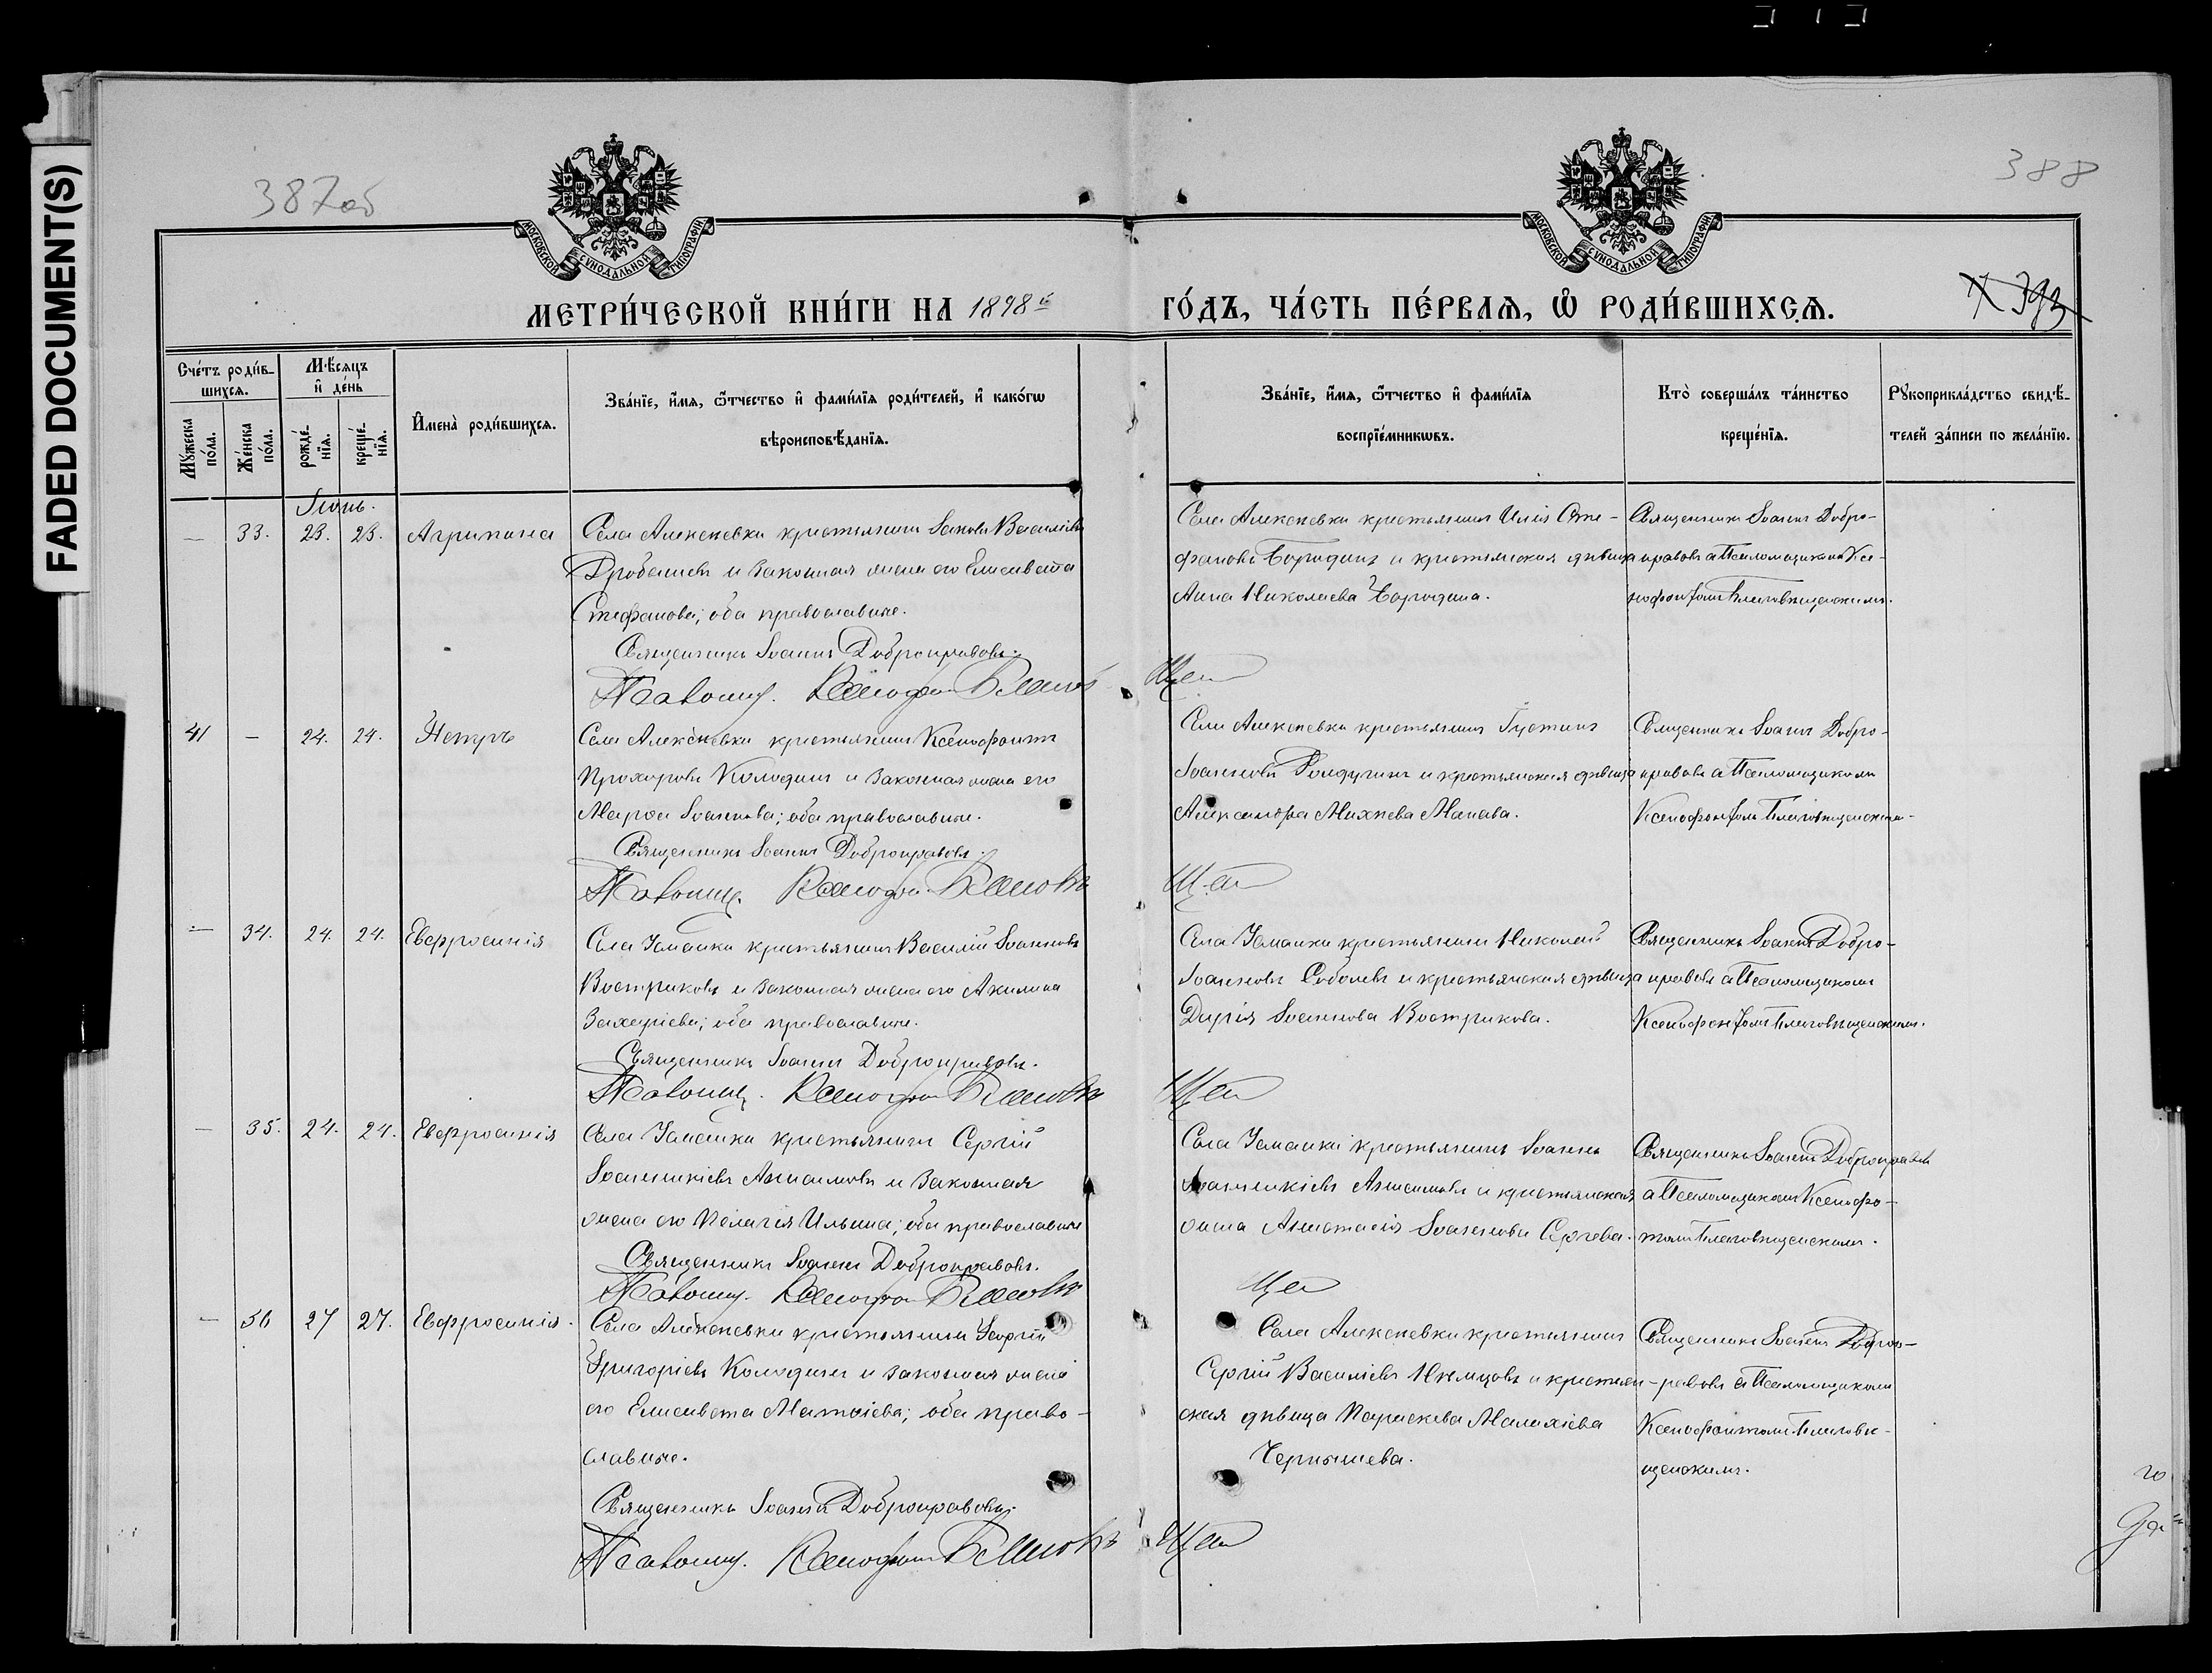 FADED DOCUMENT(S)
387об
388
МОСКОВСКОЙ СѴНОДАЛЬНОЙ ТИПОГРАФІИ
МОСКОВСКОЙ СѴНОДАЛЬНОЙ ТИПОГРАФІИ
МЕТРИ́ЧЕСКОЙ КНИ́ГИ НА 1898й
ГО́ДЪ, ЧА́СТЬ ПЕ́РВАѦ, Ѽ РОДИ́ВШИХСѦ.
393
Сче́тъ роди́в-
шихсѧ.
Мѣ́сѧцъ
и҆ де́нь
Мꙋ́жеска
по́ла.
Же́нска
по́ла.
рожде́-
нїѧ.
креще́-
нїѧ.
И҆мена̀ роди́вшихсѧ.
Зва́нїе, и҆́мѧ, ѻ҆́тчество и҆ фами́лїѧ роди́телей, и҆ како́гѡ
вѣроисповѣ́данїѧ.
Зва́нїе, и҆́мѧ, ѻ҆́тчество и҆ фами́лїѧ
воспрїе́мникѡвъ.
Кто̀ соверша́лъ та́инство
креще́нїѧ.
Рꙋкоприкла́дство свидѣ́-
телей за́писи по жела́нїю.
Іюнь.
— 33. 23. 23. Агрипина
Села Алексѣевки крестьянинъ Іаковъ Василіевъ
Дробышевъ и законная жена его Елисавета
Стефанова; оба православные.
Священникъ Іоаннъ Доброправовъ.
Псаломщ. Ксенофон Благовѣ
щен
Села Алексѣевки крестьянинъ Илія Сте-
фановъ Бородинъ и крестьянская дѣвица
Анна Николаева Бородина.
Священникъ Іоаннъ Добро-
правовъ съ Псаломщикомъ Ксе-
нофонтомъ Благовѣщенскимъ.
41 — 24. 24. Петръ
Села Алексѣевки крестьянинъ Ксенофонтъ
Прохоровъ Колодинъ и законная жена его
Марѳа Іоаннова; оба православные.
Священникъ Іоаннъ Доброправовъ.
Псаломщ. Ксенофон Благовѣ
щен
Села Алексѣевки крестьянинъ Іустинъ
Іоанновъ Ролдугинъ и крестьянская дѣвица
Александра Михеева
Священникъ Іоаннъ Добро-
правовъ съ Псаломщикомъ
Ксенофонтомъ Благовѣщенским-
— 34. 24. 24. Евфросинія
Села Усманки крестьянинъ Василій Іоанновъ
Востриковъ и законная жена его Акилина
Захаріева; оба православные.
Священникъ Іоаннъ Доброправовъ.
Псаломщ. Ксенофон Благовѣ
щен
Села Усманки крестьянинъ Николай
Іоанновъ Соболевъ и крестьянская дѣвица
Дарія Іоаннова Вострикова.
Священникъ Іоаннъ Добро-
правовъ съ Псаломщикомъ
Ксенофонтомъ Благовѣщенскимъ.
— 35. 24. 24. Евфросинія
Села Усманки крестьянинъ Сергій
Іоанникіевъ Анисимовъ и законная
жена его Пелагія Ильина; оба православные
Священникъ Іоаннъ Доброправовъ.
Псаломщ. Ксенофон Благовѣ
щен
Села Усманки крестьянинъ Іоаннъ
Іоанникіевъ Анисимовъ и крестьянская
жена Анастасія Іоаннова
Священникъ Іоаннъ Доброправовъ
съ Псаломщикомъ Ксенофо-
нтомъ Благовѣщенскимъ.
— 36 27 27. Евфросинія.
Села Алексѣевки крестьянинъ Георгій
Григоріевъ Колодинъ и законная жена
его Елисавета Матѳіева; оба право-
славные.
Священникъ Іоаннъ Доброправовъ.
Псаломщ. Ксенофон Благовѣ
щен
Села Алексѣевки крестьянинъ
Сергій Василіевъ Нѣмцовъ и крестьян-
ская дѣвица Параскева Малахіева
Чернышева.
Священникъ Іоаннъ Доброп-
равовъ съ Псаломщикомъ
Ксенофонтомъ Благовѣ-
щенскимъ.